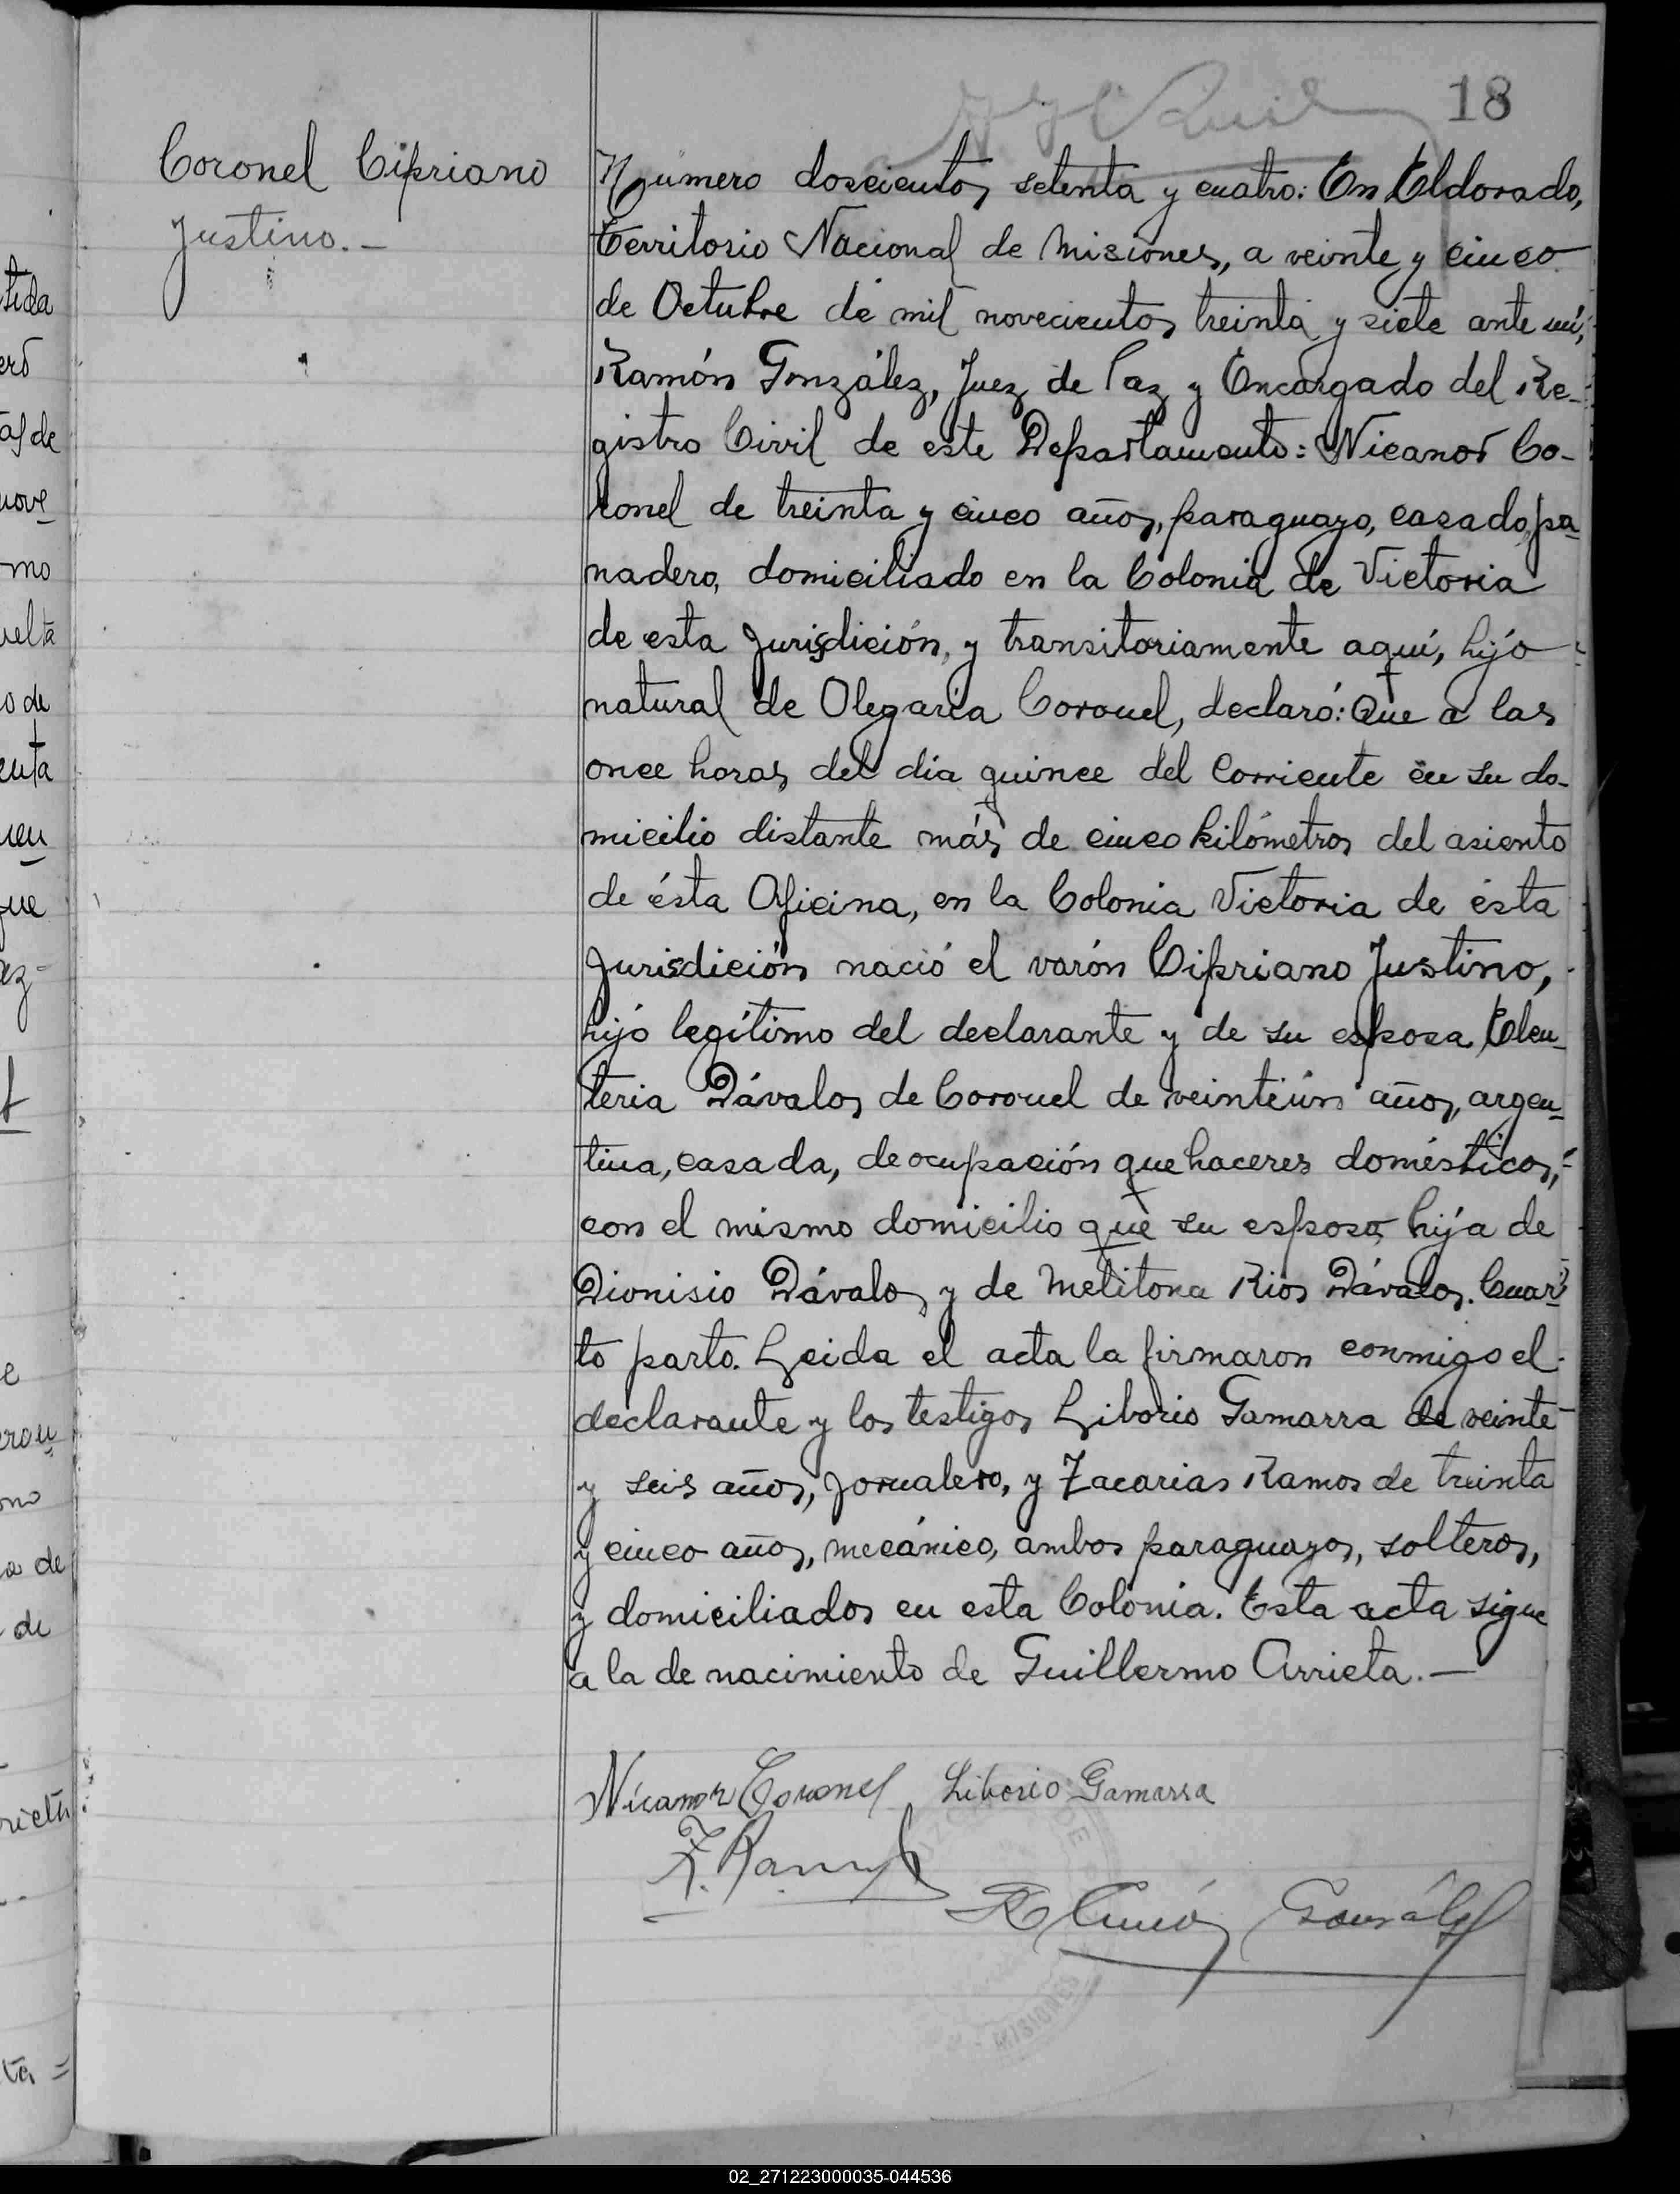 18
Coronel Cipriano
Justino.-
Número doscientos setenta y cuatro: En Eldorado,
Territorio Nacional de Misiones, a veinte y cinco
de Octubre de mil novecientos treinta y siete ante mí,
Ramón González, Juez de Paz y Encargado del Re-
gistro Civil de este Departamento: Nicanor Co-
ronel de treinta y cinco años, paraguayo, casado, pa-
nadero, domiciliado en la Colonia de Victoria
de esta Jurisdición, y transitoriamente aquí, hijo
natural de Olegaria Coronel, declaró: Que a las
once horas del día quince del corriente en su do-
micilio distante más de cinco kilómetros del asiento
de ésta Oficina, en la Colonia Victoria de ésta
Jurisdición nació el varón Cipriano Justino,
hijo legítimo del declarante y de su esposa Eleu-
teria Dávalos de Coronel de veintiún años, argen-
tina, casada, de ocupación quehaceres domésticos,
con el mismo domicilio que su esposo, hija de
Dionisio Dávalos y de Melitona Rios Dávalos. Cuar-
to parto. Leida el acta la firmaron conmigo el
declarante y los testigos Liborio Gamarra de veinte
y seis años, jornalero, y Zacarias Ramos de treinta
y cinco años, mecánico, ambos paraguayos, solteros,
y domiciliados en esta Colonia. Esta acta sigue
a la de nacimiento de Guillermo Arrieta.-
Nicanor Coronel Liborio Gamarra
Z. Ramos
Ramón González
MISIONES
02_271223000035-044536